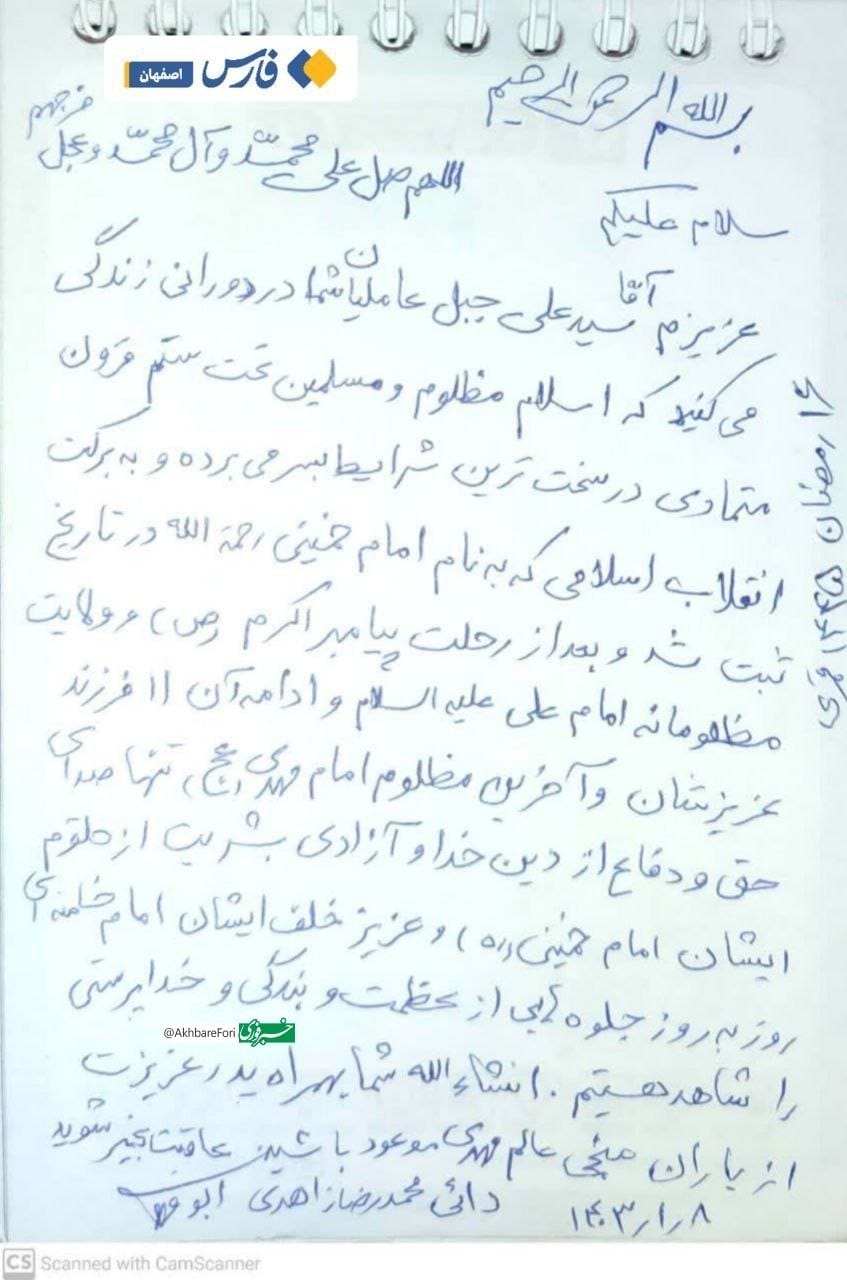 فارس
اصفهان
بسم الله الرحمن الرحیم
اللهم صل علی محمّد و آل محمّد و عجل فرجهم
سلام علیکم
عزیزم آقا سید علی جبل عاملیان شما در دورانی زندگی
می کنید که اسلام مظلوم و مسلمین تحت ستم قرون
متمادی در سخت ترین شرایط بسر می برده و به برکت
انقلاب اسلامی که به نام امام خمینی رحمة الله در تاریخ
ثبت شد و بعد از رحلت پیامبر اکرم (ص) و ولایت
مظلومانه امام علی علیه السلام و ادامه آن ۱۱ فرزند
عزیزشان و آخرین مظلوم امام مهدی (عج) تنها صدای
حق و دفاع از دین خدا و آزادی بشریت از حلقوم
ایشان امام خمینی (ره) و عزیز خلف ایشان امام خامنه ای
روز به روز جلوه هایی از عظمت و بندگی و خداپرستی
خبرفوری
@AkhbareFori
را شاهد هستیم . انشاءالله شما بهمراه پدر عزیزت
از یاران منجی عالم مهدی موعود باشین عاقبت بخیر شوید
دائی محمدرضا زاهدی
۸ر۱ر۱۴۰۳
۱۶ رمضان ۱۴۴۵ قمری
CS Scanned with CamScanner